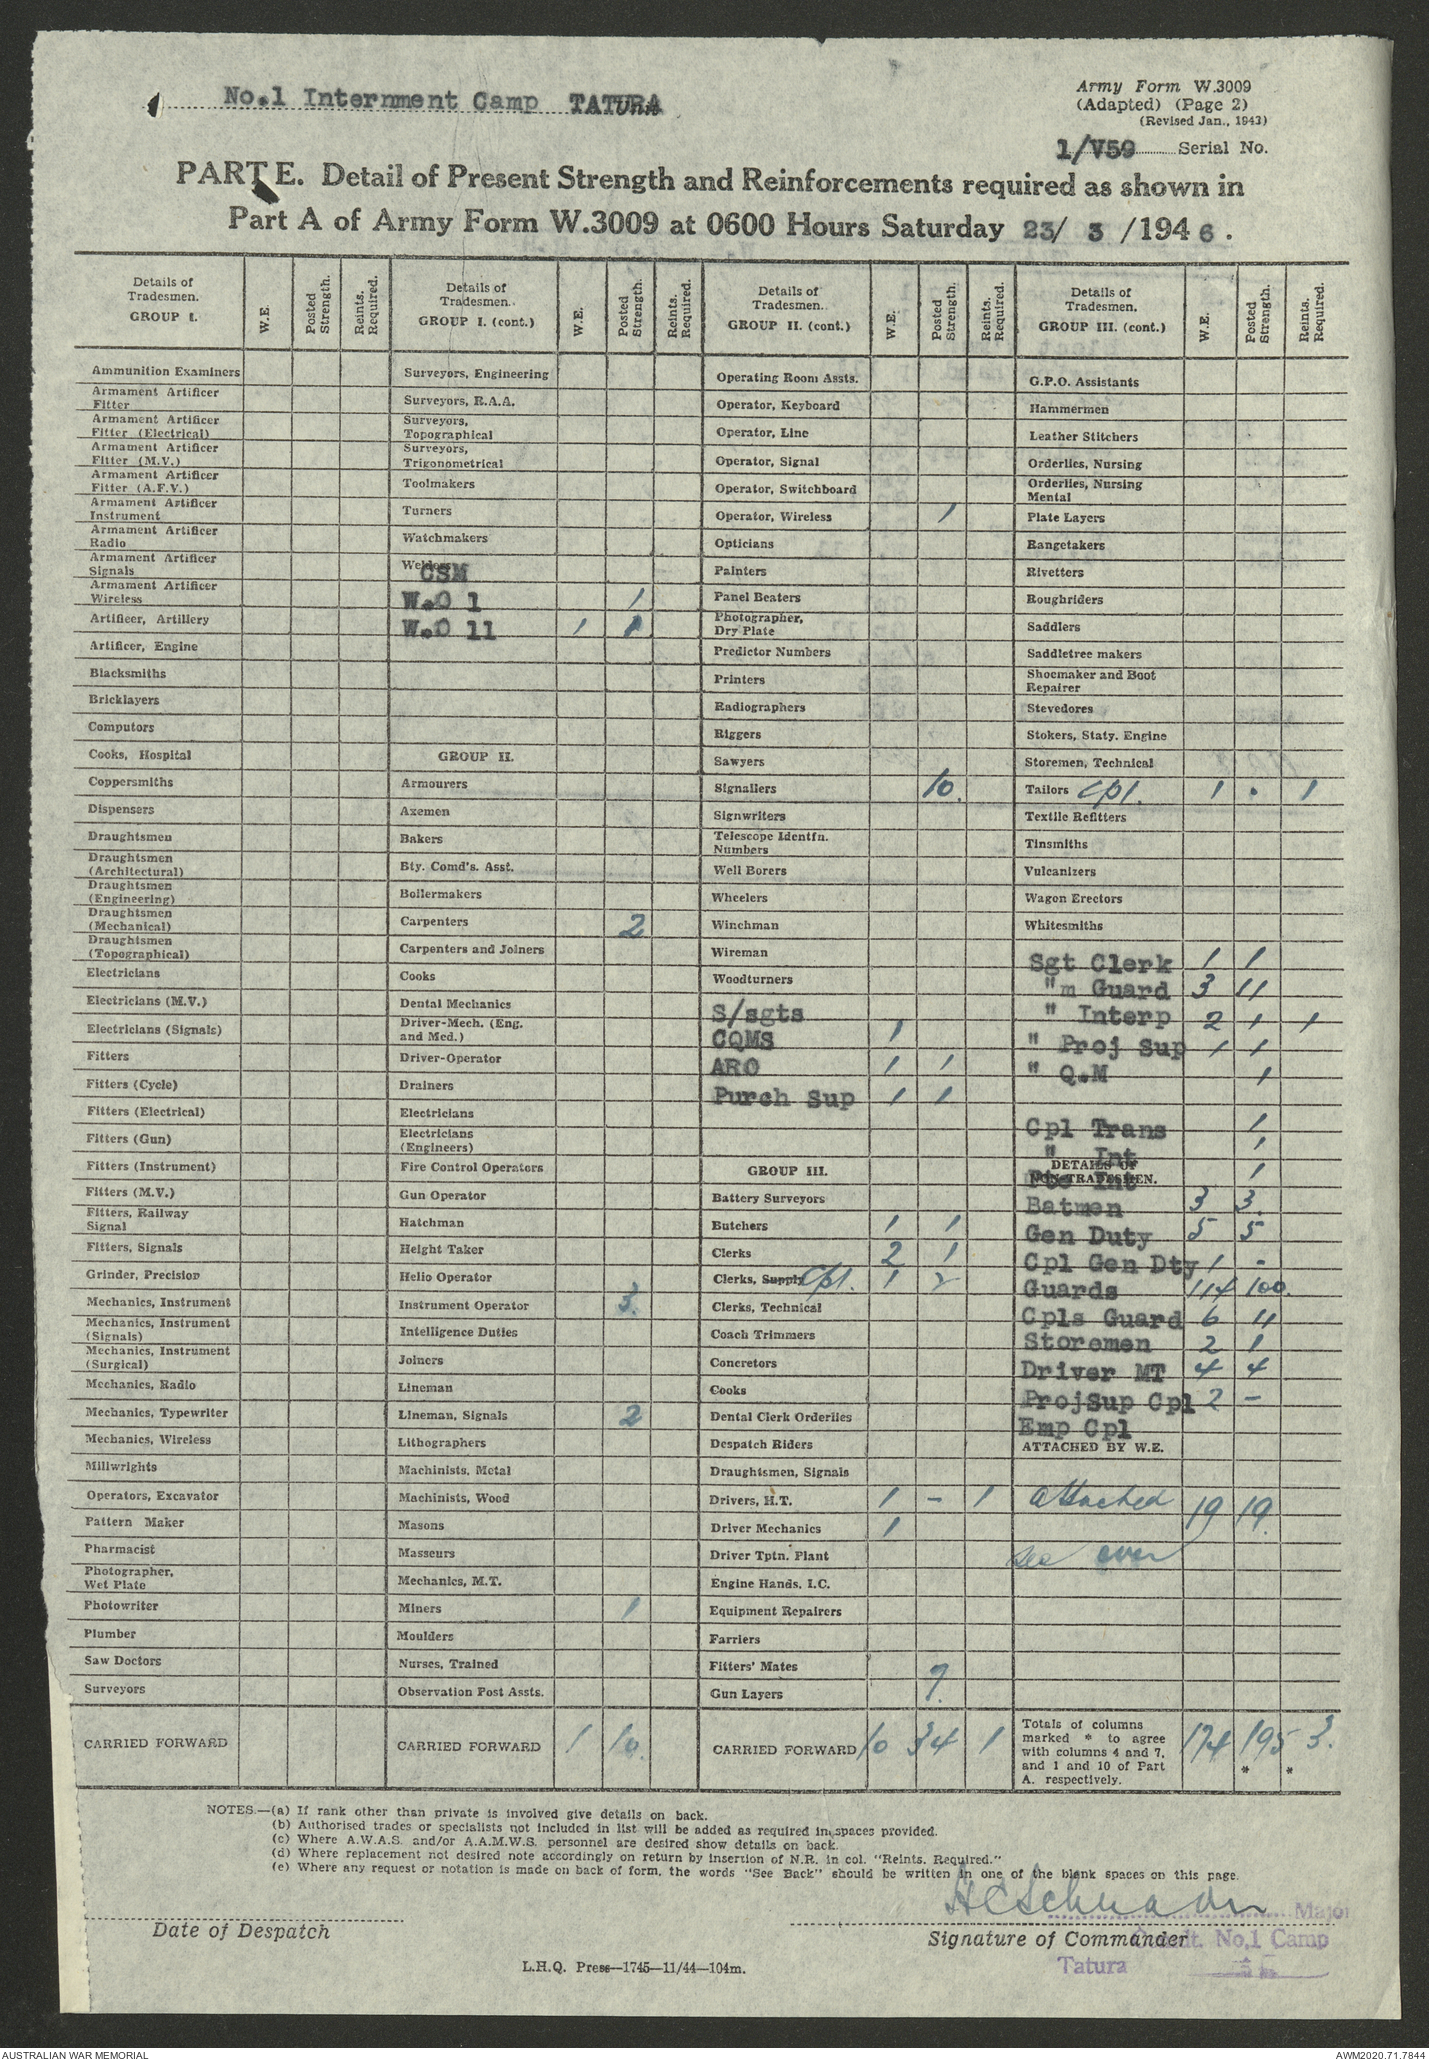 No.1 Internment Camp TATURA
Army Form W.3009
(Adapted) (Page 2)
(Revised Jan., 1943)
1/V59 Serial No.
PART E. Detail of Present Strength and Reinforcements required as shown in
Part A of Army Form W.3009 at 0600 Hours Saturday 23/ 3 /1946.
Details of Tradesmen. GROUP I. W.E. Posted Strength. Reints. Required.
Ammunition Examiners
Armament Artificer Fitter
Armament Artificer Fitter (Electrical)
Armament Artificer Fitter (M.V.)
Armament Artificer Fitter (A.F.V.)
Armament Artificer Instrument
Armament Artificer Radio
Armament Artificer Signals
Armament Artificer Wireless
Artificer, Artillery
Artificer, Engine
Blacksmiths
Bricklayers
Computors
Cooks, Hospital
Coppersmiths
Dispensers
Draughtsmen
Draughtsmen (Architectural)
Draughtsmen (Engineering)
Draughtsmen (Mechanical)
Draughtsmen (Topographical)
Electricians
Electricians (M.V.)
Electricians (Signals)
Fitters
Fitters (Cycle)
Fitters (Electrical)
Fitters (Gun)
Fitters (Instrument)
Fitters (M.V.)
Fitters, Railway Signal
Fitters, Signals
Grinder, Precision
Mechanics, Instrument
Mechanics, Instrument (Signals)
Mechanics, Instrument (Surgical)
Mechanics, Radio
Mechanics, Typewriter
Mechanics, Wireless
Millwrights
Operators, Excavator
Pattern Maker
Pharmacist
Photographer, Wet Plate
Photowriter
Plumber
Saw Doctors
Surveyors
CARRIED FORWARD
Details of Tradesmen. GROUP I. (cont.) W.E. Posted Strength. Reints. Required.
Surveyors, Engineering
Surveyors, R.A.A.
Surveyors, Topographical
Surveyors, Trigonometrical
Toolmakers
Turners
Watchmakers
Welders CSM
W.O 1 1
W.O 11 1 1
GROUP II.
Armourers
Axemen
Bakers
Bty. Comd's. Asst.
Boilermakers
Carpenters 2
Carpenters and Joiners
Cooks
Dental Mechanics
Driver-Mech. (Eng. and Med.)
Driver-Operator
Drainers
Electricians
Electricians (Engineers)
Fire Control Operators
Gun Operator
Hatchman
Height Taker
Helio Operator
Instrument Operator 3.
Intelligence Duties
Joiners
Lineman
Lineman, Signals 2
Lithographers
Machinists, Metal
Machinists, Wood
Masons
Masseurs
Mechanics, M.T.
Miners 1
Moulders
Nurses, Trained
Observation Post Assts.
CARRIED FORWARD 1 10.
Details of Tradesmen. GROUP II. (cont.) W.E. Posted Strength. Reints. Required.
Operating Room Assts.
Operator, Keyboard
Operator, Line
Operator, Signal
Operator, Switchboard
Operator, Wireless 1
Opticians
Painters
Panel Beaters
Photographer, Dry Plate
Predictor Numbers
Printers
Radiographers
Riggers
Sawyers
Signallers 10.
Signwriters
Telescope Identfn. Numbers
Well Borers
Wheelers
Winchman
Wireman
Woodturners
S/sgts
CQMS 1
ARO 1 1
Purch Sup 1 1
GROUP III.
Battery Surveyors
Butchers 1 1
Clerks 2 1
Clerks, Supply Cpl. 1 2
Clerks, Technical
Coach Trimmers
Concretors
Cooks
Dental Clerk Orderlies
Despatch Riders
Draughtsmen, Signals
Drivers, H.T. 1 - 1
Driver Mechanics 1
Driver Tptn. Plant
Engine Hands, I.C.
Equipment Repairers
Farriers
Fitters' Mates
Gun Layers 7.
CARRIED FORWARD 10 34 1
Details of Tradesmen. GROUP III. (cont.) W.E. Posted Strength. Reints. Required.
G.P.O. Assistants
Hammermen
Leather Stitchers
Orderlies, Nursing
Orderlies, Nursing Mental
Plate Layers
Rangetakers
Rivetters
Roughriders
Saddlers
Saddletree makers
Shoemaker and Boot Repairer
Stevedores
Stokers, Staty. Engine
Storemen, Technical
Tailors Cpl. 1 . 1
Textile Refitters
Tinsmiths
Vulcanizers
Wagon Erectors
Whitesmiths
Sgt Clerk 1 1
"m Guard 3 11
" Interp 2 1 1
" Proj Sup 1 1
" Q.M 1
Cpl Trans 1
" Int 1
DETAILS OF NON-TRADESMEN.
Pte Int 1
Batmen 3 3.
Gen Duty 5 5
Cpl Gen Dty 1 -
Guards 114 100.
Cpls Guard 6 11
Storemen 2 1
Driver MT 4 4
ProjSup Cpl 2 -
Emp Cpl
ATTACHED BY W.E.
attached 19 19.
see over
Totals of columns marked * to agree with columns 4 and 7, and 1 and 10 of Part A. respectively. 174 195 * 3. *
NOTES.—(a) If rank other than private is involved give details on back.
(b) Authorised trades or specialists not included in list will be added as required in spaces provided.
(c) Where A.W.A.S. and/or A.A.M.W.S. personnel are desired show details on back.
(d) Where replacement not desired note accordingly on return by insertion of N.R. in col. "Reints. Required."
(e) Where any request or notation is made on back of form, the words "See Back" should be written in one of the blank spaces on this page.
Major
Date of Despatch
Signature of Commander
Comdt. No,1 Camp
Tatura
L.H.Q. Press—1745—11/44—104m.
AUSTRALIAN WAR MEMORIAL
AWM2020.71.7844